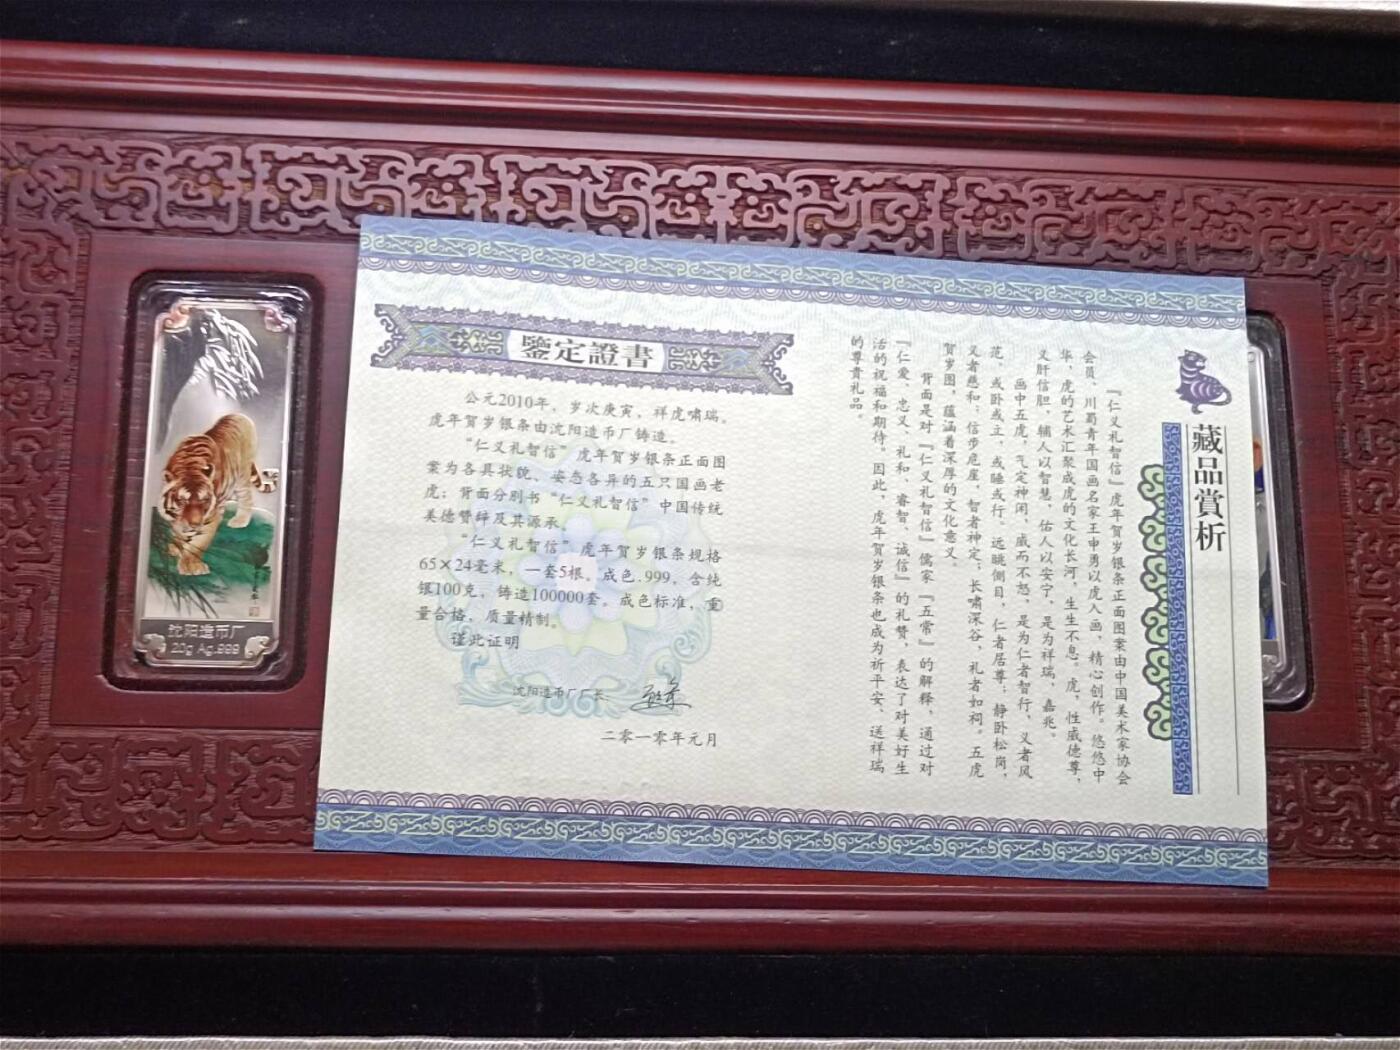 沈阳造币厂
20g Ag.999
鑒定證書
公元2010年，岁次庚寅，祥虎啸瑞。
虎年贺岁银条由沈阳造币厂铸造。
“仁义礼智信”虎年贺岁银条正面图
案为各具状貌、姿态各异的五只国画老
虎；背面分别书“仁义礼智信”中国传统
美德赞辞及其源承。
“仁义礼智信”虎年贺岁银条规格
65×24毫米，一套5根。成色.999，含纯
银100克，铸造100000套。成色标准，重
量合格，质量精制。
谨此证明
沈阳造币厂厂长
二零一零年元月
藏品賞析
『仁义礼智信』虎年贺岁银条正面图案由中国美术家协会
会员、川蜀青年国画名家王申勇以虎入画，精心创作。悠悠中
华，虎的艺术汇聚成虎的文化长河，生生不息。虎，性威德尊，
义肝信胆，辅人以智慧，佑人以安宁，是为祥瑞，嘉兆。
画中五虎，气定神闲，威而不怒，是为仁者智行、义者风
范，或卧或立，或睡或行。远眺侧目，仁者居尊；静卧松岗，
义者慈和；信步危崖，智者神定；长啸深谷，礼者如祠。五虎
贺岁图，蕴涵着深厚的文化意义。
背面是对『仁义礼智信』儒家『五常』的解释，通过对
『仁爱、忠义、礼和、睿智、诚信』的礼赞，表达了对美好生
活的祝福和期待。因此，虎年贺岁银条也成为祈平安、送祥瑞
的尊贵礼品。